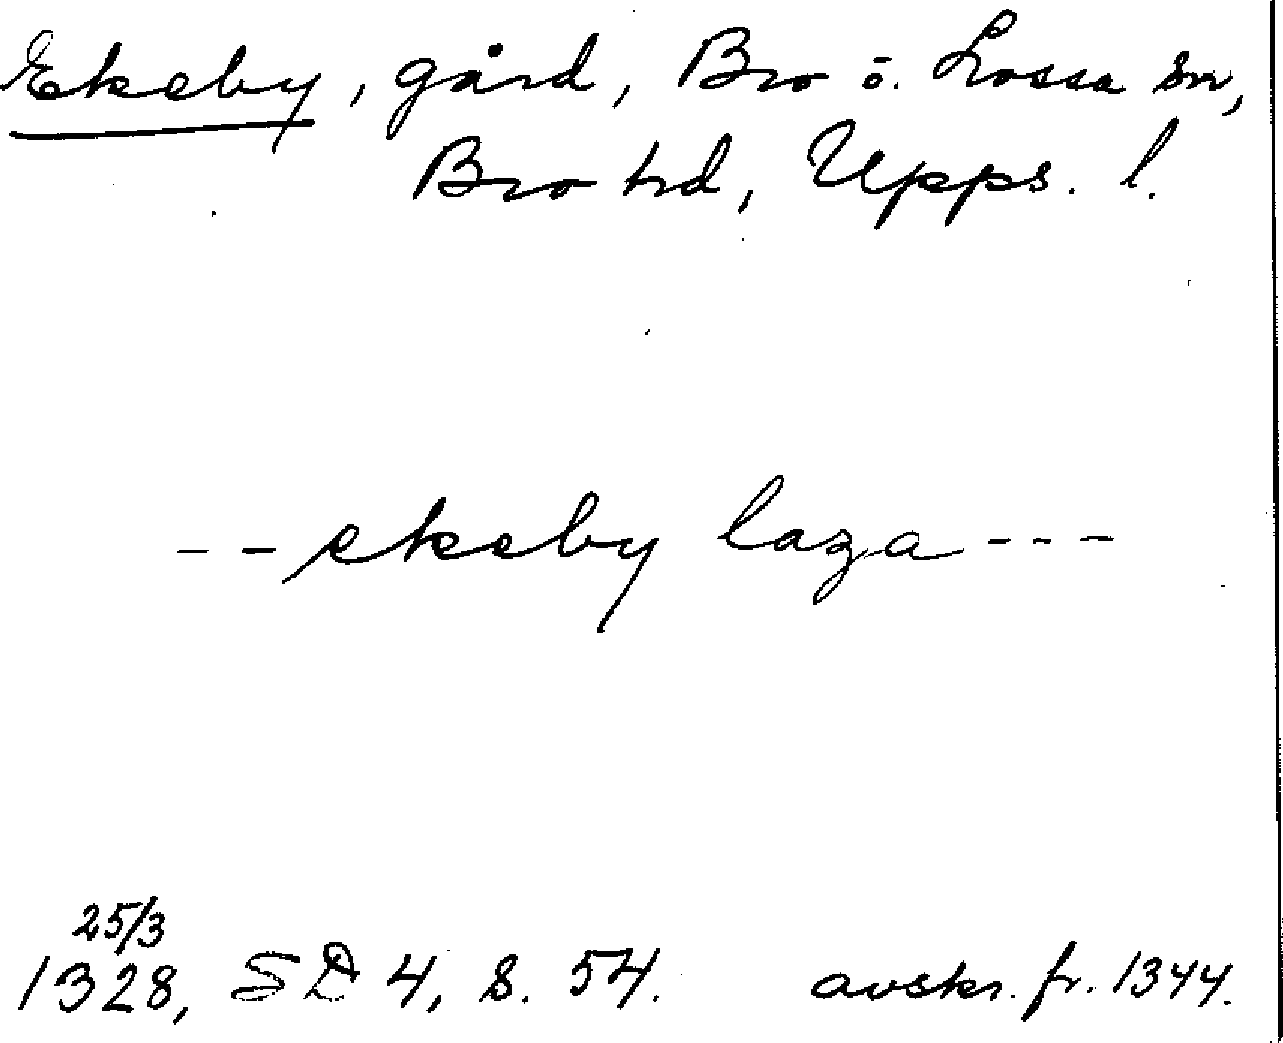 Ekeby, gård, Bro o. Lossa sn,
Bro hd, Upps. l.
-- ekeby laza ---
25/3
1328, SD 4, s. 54. avskr. fr. 1344.